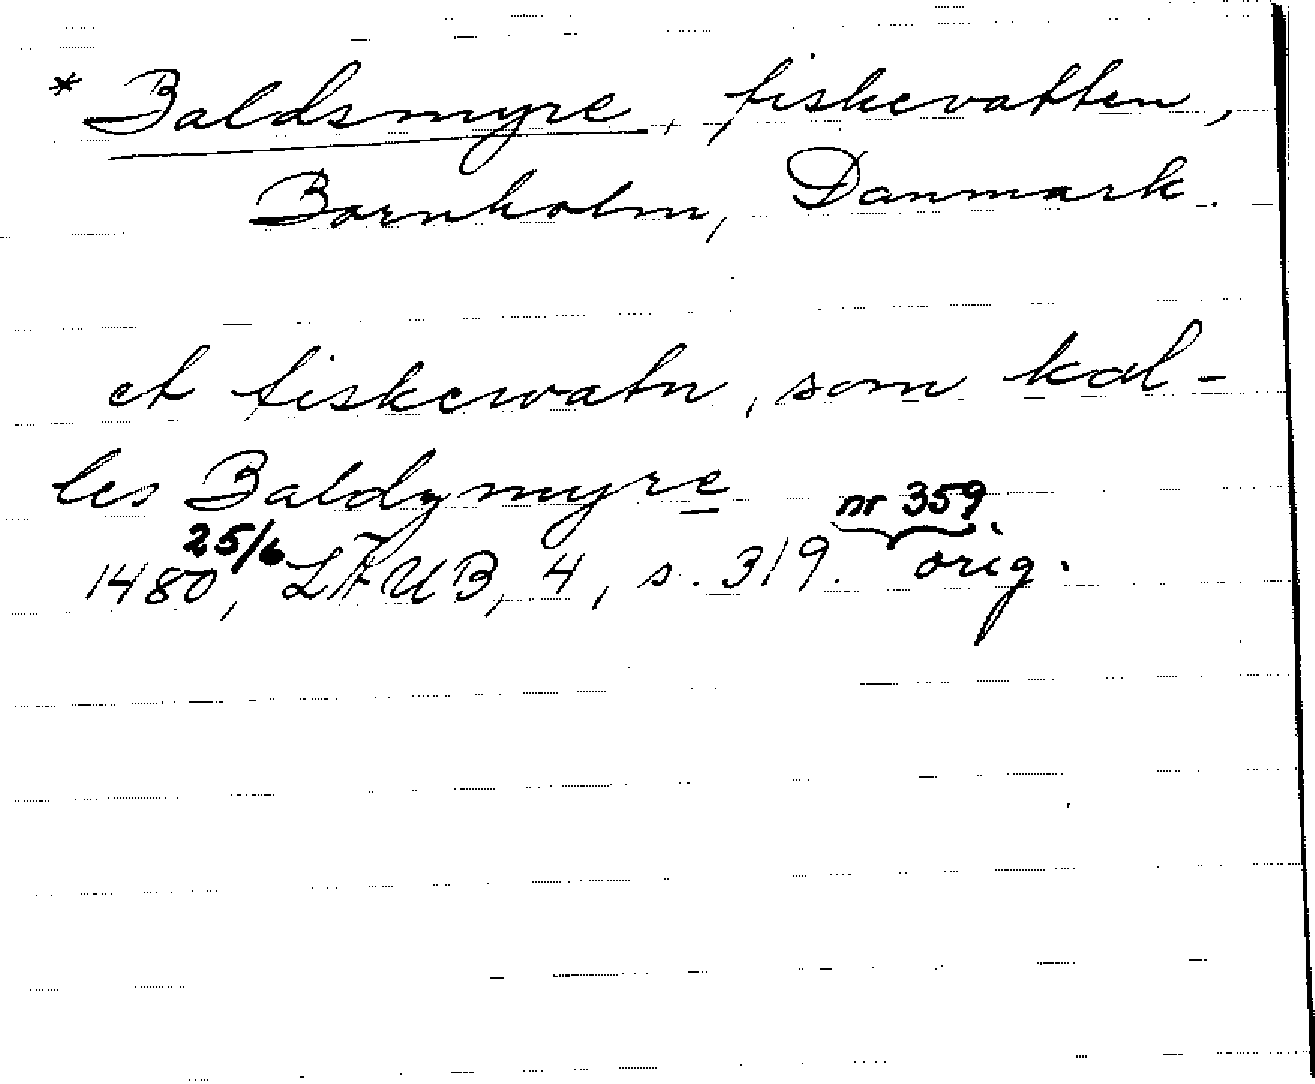 * Baldsmyre, fiskevatten,
Bornholm, Danmark.
et fiskewatn, som kal-
les Baldzmyre
25/6 nr 359.
1480, LÄUB, 4, s. 319. orig.